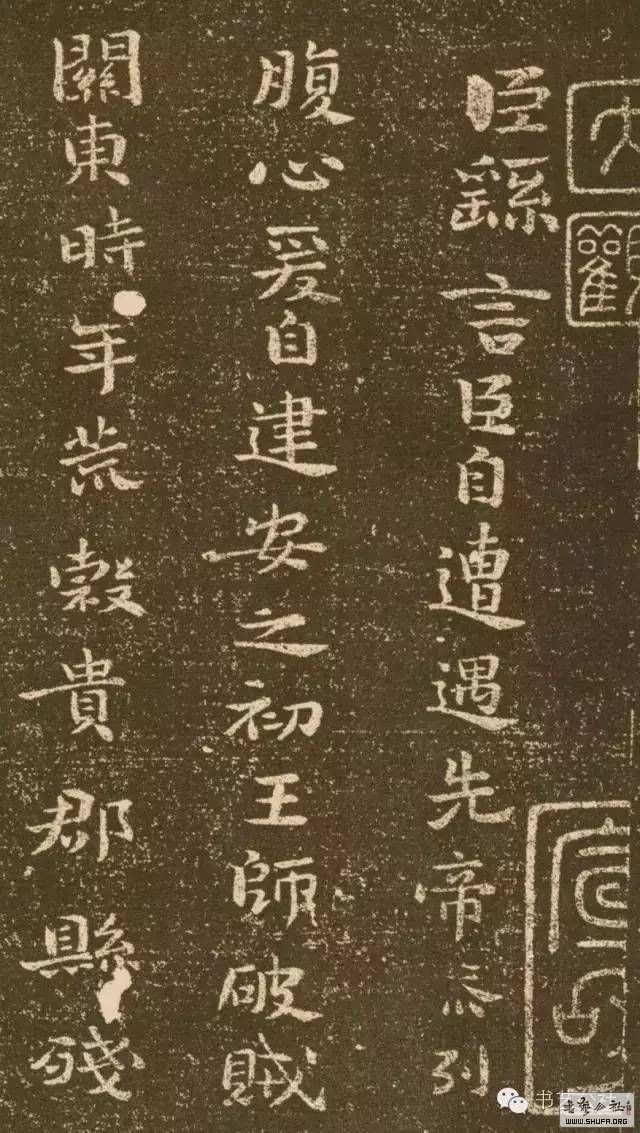 大觀
臣繇言臣自遭遇先帝忝列
腹心爰自建安之初王師破賊
關東時年荒穀貴郡縣殘
书艺公社
WWW.SHUFA.ORG